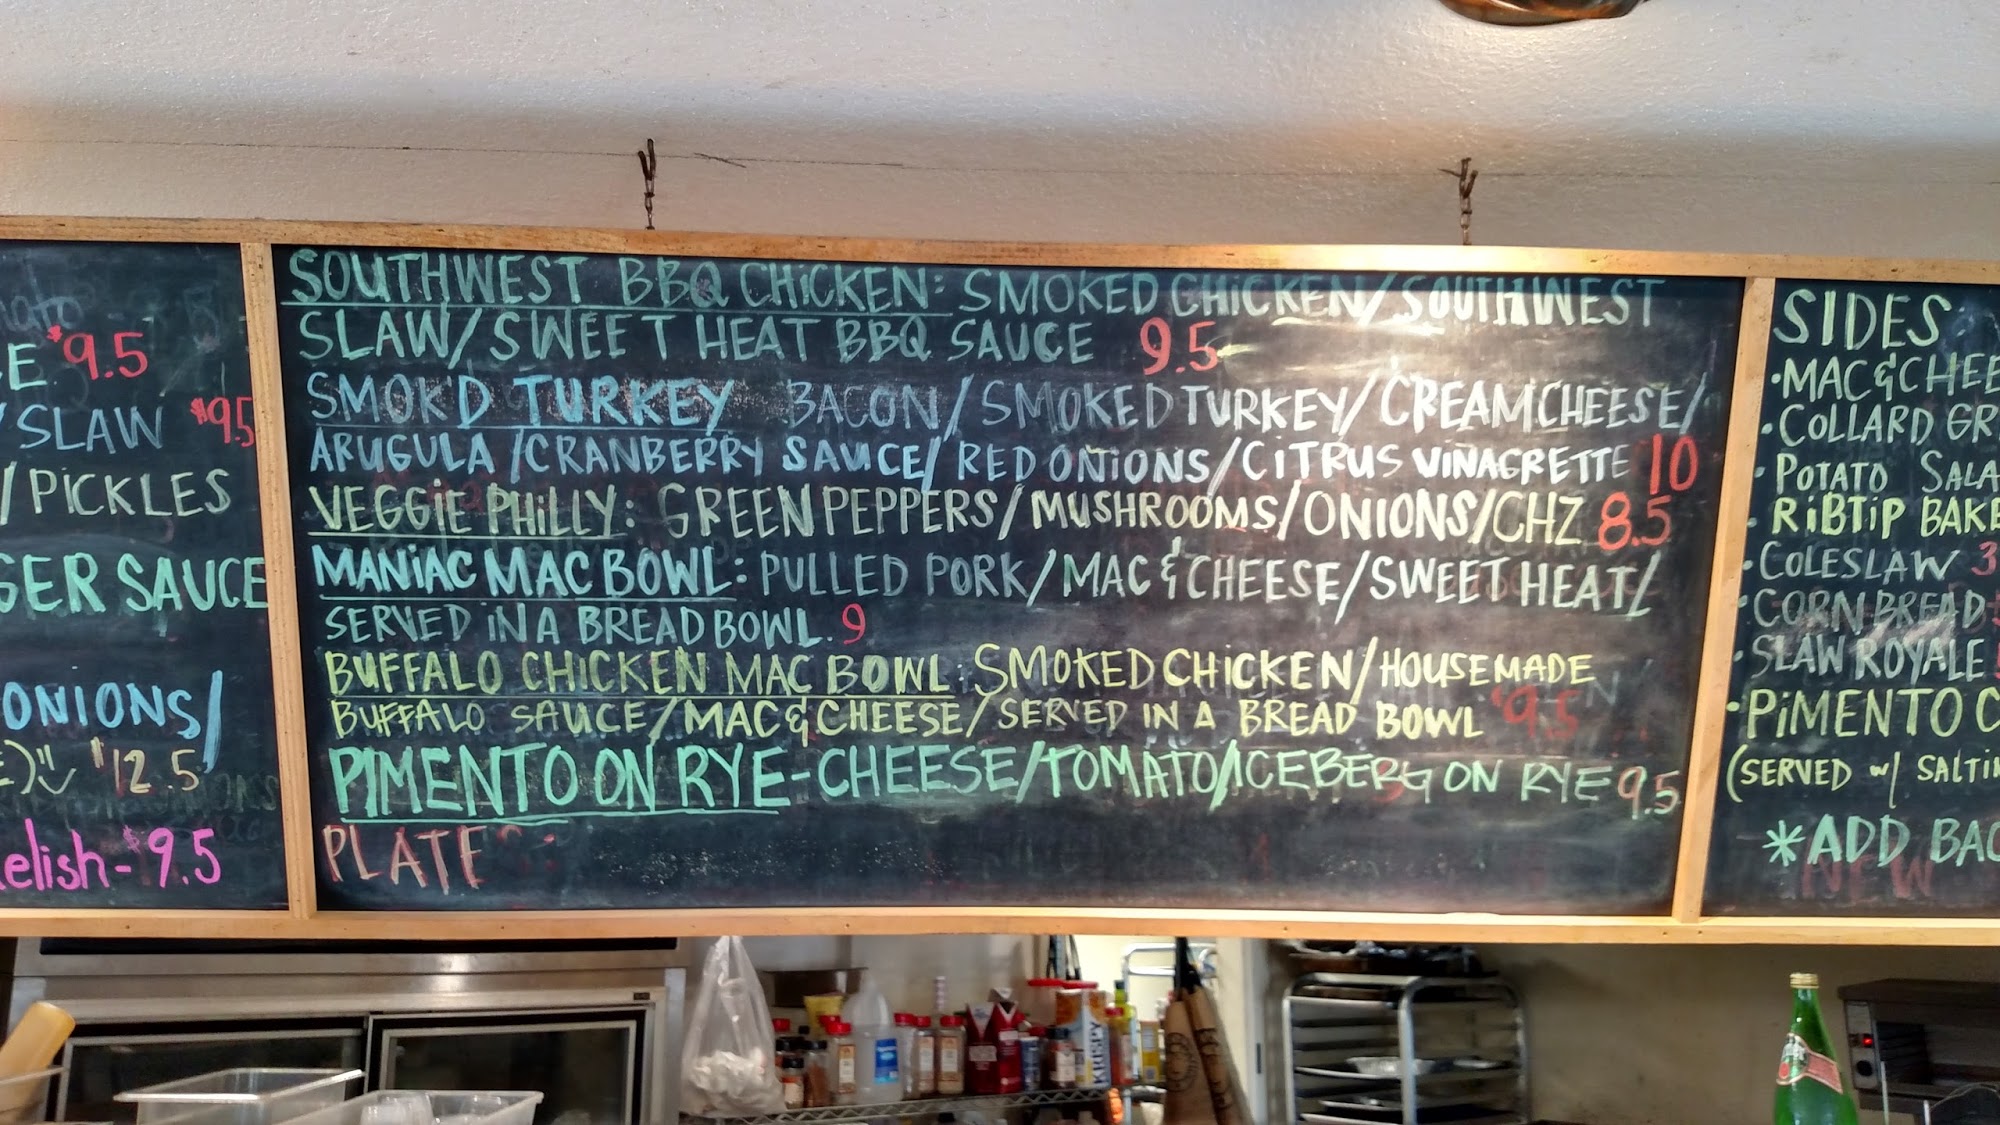 $9.5
/SLAW $95
/PICKLES
GER SAUCE
ONIONS/
12.5
elish - 9.5
SOUTHWEST BBQ CHICKEN: SMOKED CHICKEN/SOUTHWEST
SLAW/SWEET HEAT BBQ SAUCE 9.5
SMOKD TURKEY BACON/SMOKED TURKEY/CREAM CHEESE/
ARUGULA/CRANBERRY SAUCE/RED ONIONS/CITRUS VINAGRETTE 10
VEGGIE PHILLY: GREEN PEPPERS/MUSHROOMS/ONIONS/CHZ 8.5
MANIAC MAC BOWL: PULLED PORK/MAC & CHEESE/SWEET HEAT/
SERVED IN A BREAD BOWL. 9
BUFFALO CHICKEN MAC BOWL: SMOKED CHICKEN/HOUSEMADE
BUFFALO SAUCE/MAC & CHEESE/SERVED IN A BREAD BOWL $9.5
PIMENTO ON RYE-CHEESE/TOMATO/ICEBERG ON RYE 9.5
PLATE
SIDES
·MAC & CHEE
·COLLARD GR
·POTATO SALA
·RIBTIP BAKE
·COLESLAW 3
·CORNBREAD
·SLAW ROYALE
·PIMENTO C
(SERVED w/ SALTIN
*ADD BAC
NEW
KRISPY